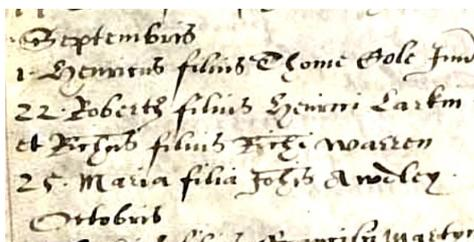 Septembris
1. Henricus filius Thome Cole Jun
22. Robertus filius Henrici Larkin
et Richus filius Richi Warren
25. Maria filia Johis Awdley
Octobris